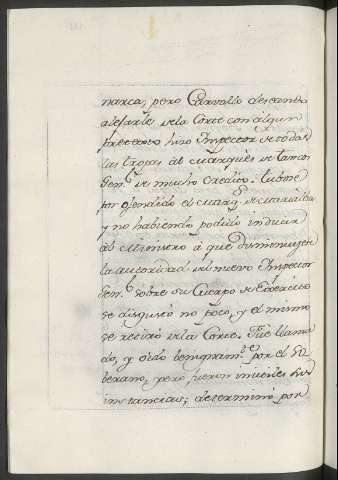 narca, pero Carvallo deseando
alejarle de la Corte con algun
pretexto hizo Inspector de todas
las tropas al marques de Tancos
Gen.l de mucho credito. Tubose
por ofendido el Marq.s de Marialba
y no habiendo podido inducir
al Ministro á que disminuyese
la autoridad del nuevo Inspector
Gen.l sobre su Cuerpo de Exército
se disgustó no poco, y el mismo
se retiró de la Corte. Fue llama
do, y oido benignam.te por el So
berano, pero fueron inutiles sus
instancias; determinó por